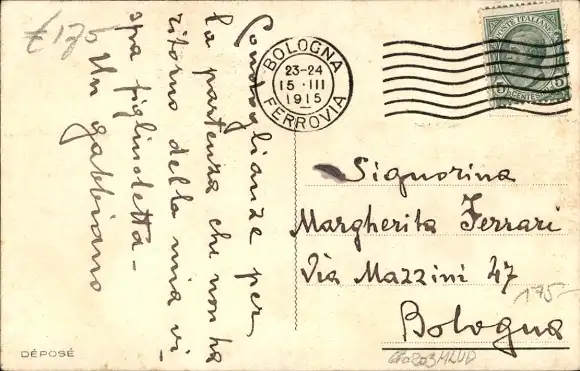 € 175
Condoglianze per
la partenza che non ha
ritorno della mia vi-
spa figlioletta-
Un gabbiano
BOLOGNA
23-24
15·III
1915
FERROVIA
POSTE ITALIANE
5 CENTESIMI 5
Signorina
Margherita Ferrari
Via Mazzini 47
175-
Bologna
DÉPOSÉ